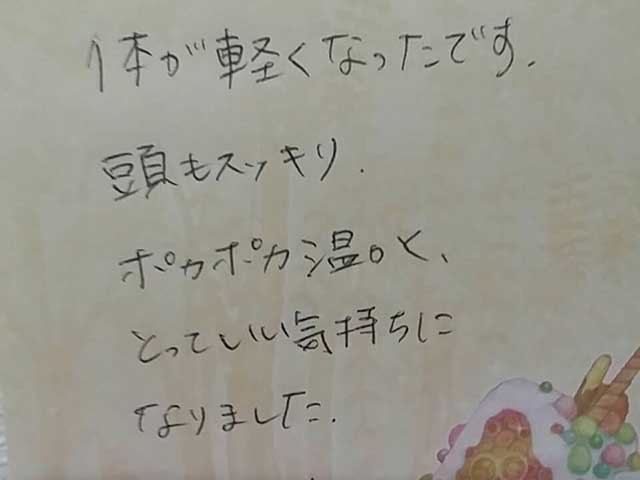 体が軽くなったです.
頭もスッキリ.
ポカポカ温。と、
とっていい気持ちに
なりました.